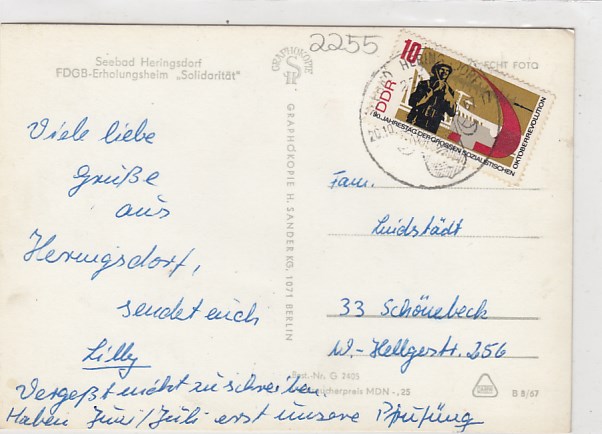 2255
Seebad Heringsdorf
FDGB-Erholungsheim „Solidarität"
GRAPHOKOPIE
H S
ECHT FOTO
10
DDR
50. JAHRESTAG DER GROSSEN SOZIALISTISCHEN
OKTOBERREVOLUTION
Viele liebe
Grüße
aus
Heringsdorf,
sendet euch
Lilly
Vergeßt nicht zu schreiben.
Haben Juni/Juli erst unsere Prüfung
GRAPHOKOPIE H. SANDER KG, 1071 BERLIN
Fam.
Lindstädt
33 Schönebeck
W.-Hellgestr. 256
Best.-Nr. G 2405
MDN -,25
B 8/67